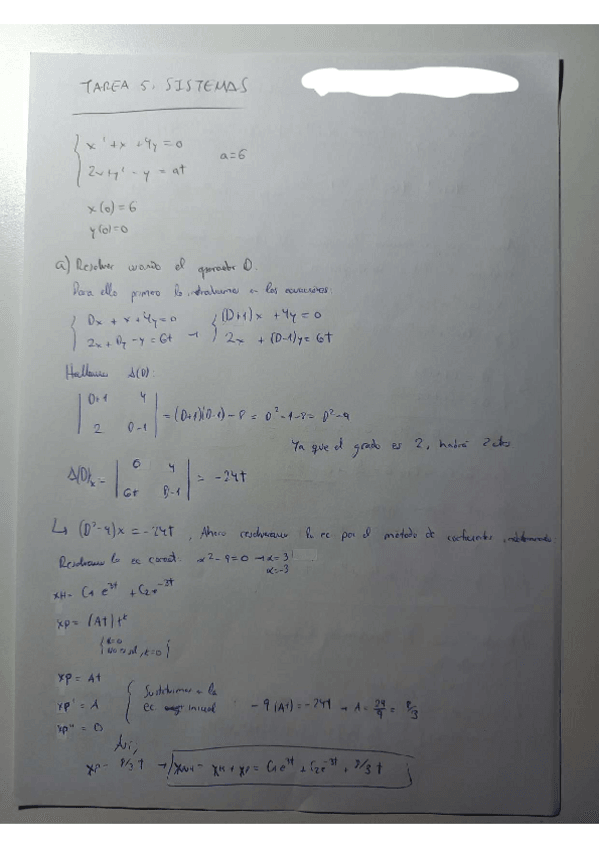 TAREA 5. SISTEMAS
x' + x + 4y = 0
a=6
2x + y' - y = at
x(0) = 6
y(0)=0
a) Resolver usando el operador D.
Para ello primero lo introducimos en las ecuaciones:
{ Dx + x + 4y = 0 → { (D+1)x + 4y = 0
2x + Dy - y = 6t 2x + (D-1)y = 6t
Hallamos Δ(D):
| D+1 4 |
| 2 D-1 | = (D+1)(D-1) - 8 = D²-1-8 = D²-9
Ya que el grado es 2, habrá 2 ctes
Δ(D)x = | 0 4 |
| 6t D-1 | = -24t
↳ (D²-9)x = -24t, Ahora resolveremos la ec por el método de coeficientes indeterminados
Resolvemos la ec caract. α²-9=0 → α=3
α=-3
xH = C1 e^3t + C2 e^-3t
xp = (At) t^k
xp = At
xp' = A
xp'' = 0
{ Sustituimos en la
ec inicial - 9(At) = -24t → A = 24/9 = 8/3
Así,
xp = 8/3 t → xNH = xH + xp = C1 e^3t + C2 e^-3t + 8/3 t